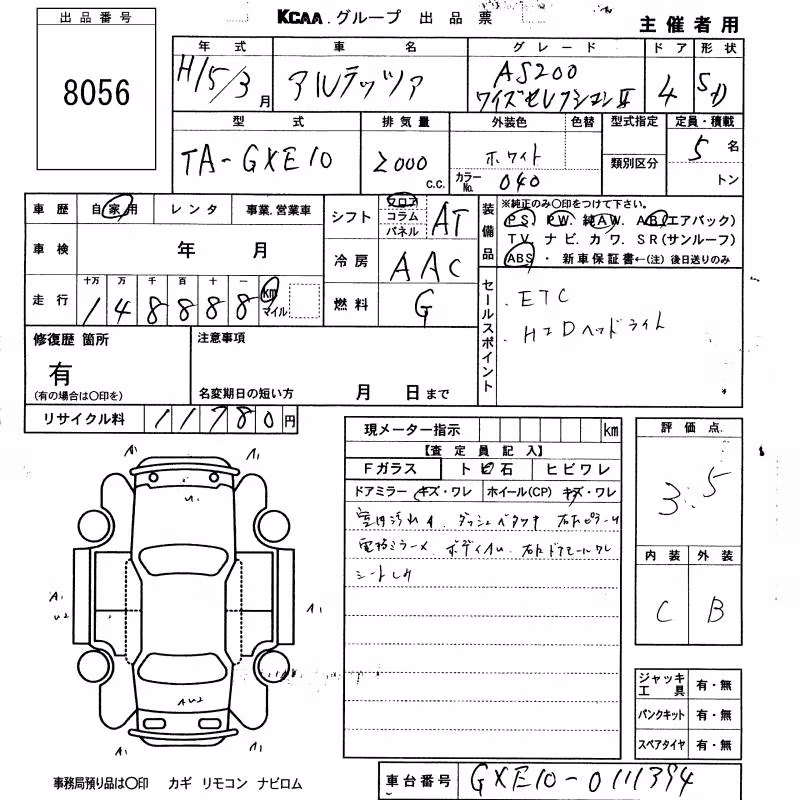 出品番号
8056
KCAA.グループ 出品票
主催者用
年式 車名 グレード ドア 形状
H15/3月 アルテッツァ AS200 4 SD
ワイズセレクションII
型式 排気量 外装色 色替 型式指定 定員・積載
TA-GXE10 2000 c.c. ホワイト 5名
カラーNo. 040 類別区分 トン
車歴 自家用 レンタ 事業.営業車
シフト フロア コラム パネル AT
装備品 ※純正のみ○印をつけて下さい。
PS. PW. 純AW. AB(エアバック)
TV. ナビ. カワ. SR(サンルーフ)
ABS ・ 新車保証書←(注) 後日送りのみ
車検 年 月
冷房 AAC
走行 十万 万 千 百 十 一
148888 km マイル
燃料 G
セールスポイント
ETC
HIDヘッドライト
修復歴 箇所
有
(有の場合は○印を)
注意事項
名変期日の短い方 月 日まで
リサイクル料 11780円
現メーター指示 km
【査定員記入】
Fガラス トビ石 ヒビワレ
ドアミラー キズ・ワレ ホイール(CP) キズ・ワレ
室内汚れ ダッシュベタつき
電格ミラー ボディ
シート
評価点
3.5
内装 外装
C B
ジャッキ工具 有・無
パンクキット 有・無
スペアタイヤ 有・無
A1 A1
U1
A1
U2
A1
AU2
A1 A1
事務局預り品は○印 カギ リモコン ナビロム
車台番号 GXE10-0111394